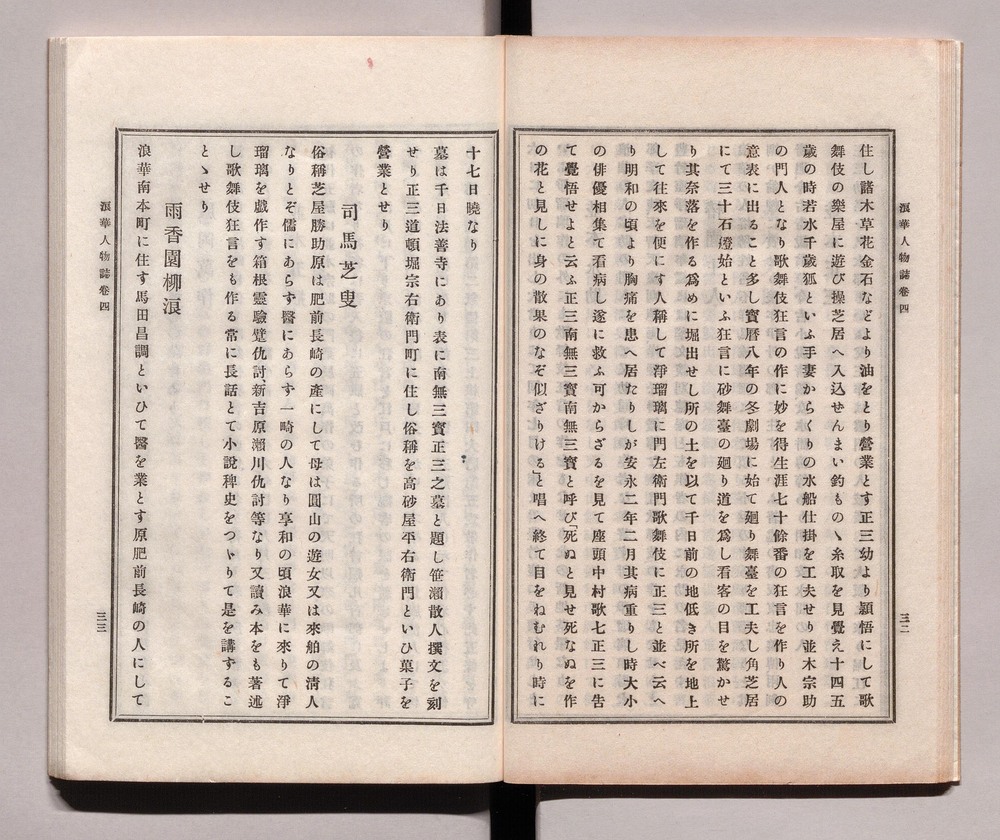 浪華人物誌卷四
住し諸木草花金石などより油をとり營業とす正三幼より穎悟にして歌
舞伎の樂屋に遊び操芝居へ入込せんまい釣ものゝ糸取を見覺え十四五
歳の時若水千歳狐といふ手妻からくりの水船仕掛を工夫せり並木宗助
の門人となり歌舞伎狂言の作に妙を得生涯七十餘番の狂言を作り人の
意表に出ること多し寶曆八年の冬劇場に始て廻り舞臺を工夫し角芝居
にて三十石㠉始といふ狂言に砂舞臺の廻り道を爲し看客の目を驚かせ
り其奈落を作る爲めに堀出せし所の土を以て千日前の地低き所を地上
して往來を便にす人稱して淨瑠璃に門左衛門歌舞伎に正三と並べ云へ
り明和の頃より胸痛を患へ居たりしが安永二年二月其病重りし時大小
の俳優相集て看病し遂に救ふ可からざるを見て座頭中村歌七正三に告
て覺悟せよと云ふ正三南無三寳南無三寳と呼び「死ぬと見せ死なぬを作
の花と見しに身の散果のなぞ似ざりける」と唱へ終て目をねむれり時に
三二
浪華人物誌卷四
十七日曉なり
墓は千日法善寺にあり表に南無三寳正三之墓と題し笹瀨散人撰文を刻
せり正三道頓堀宗右衛門町に住し俗稱を高砂屋平右衛門といひ菓子を
營業とせり
司馬芝叟
俗稱芝屋勝助原は肥前長崎の產にして母は圓山の遊女又は來舶の淸人
なりとぞ儒にあらす醫にあらす一畸の人なり享和の頃浪華に來りて淨
瑠璃を戲作す箱根靈驗躄仇討、新吉原瀨川仇討等なり又讀み本をも著述
し歌舞伎狂言をも作る常に長話とて小說稗史をつゝりて是を講するこ
とゝせり
雨香園柳浪
浪華南本町に住す馬田昌調といひて醫を業とす原肥前長崎の人にして
三三